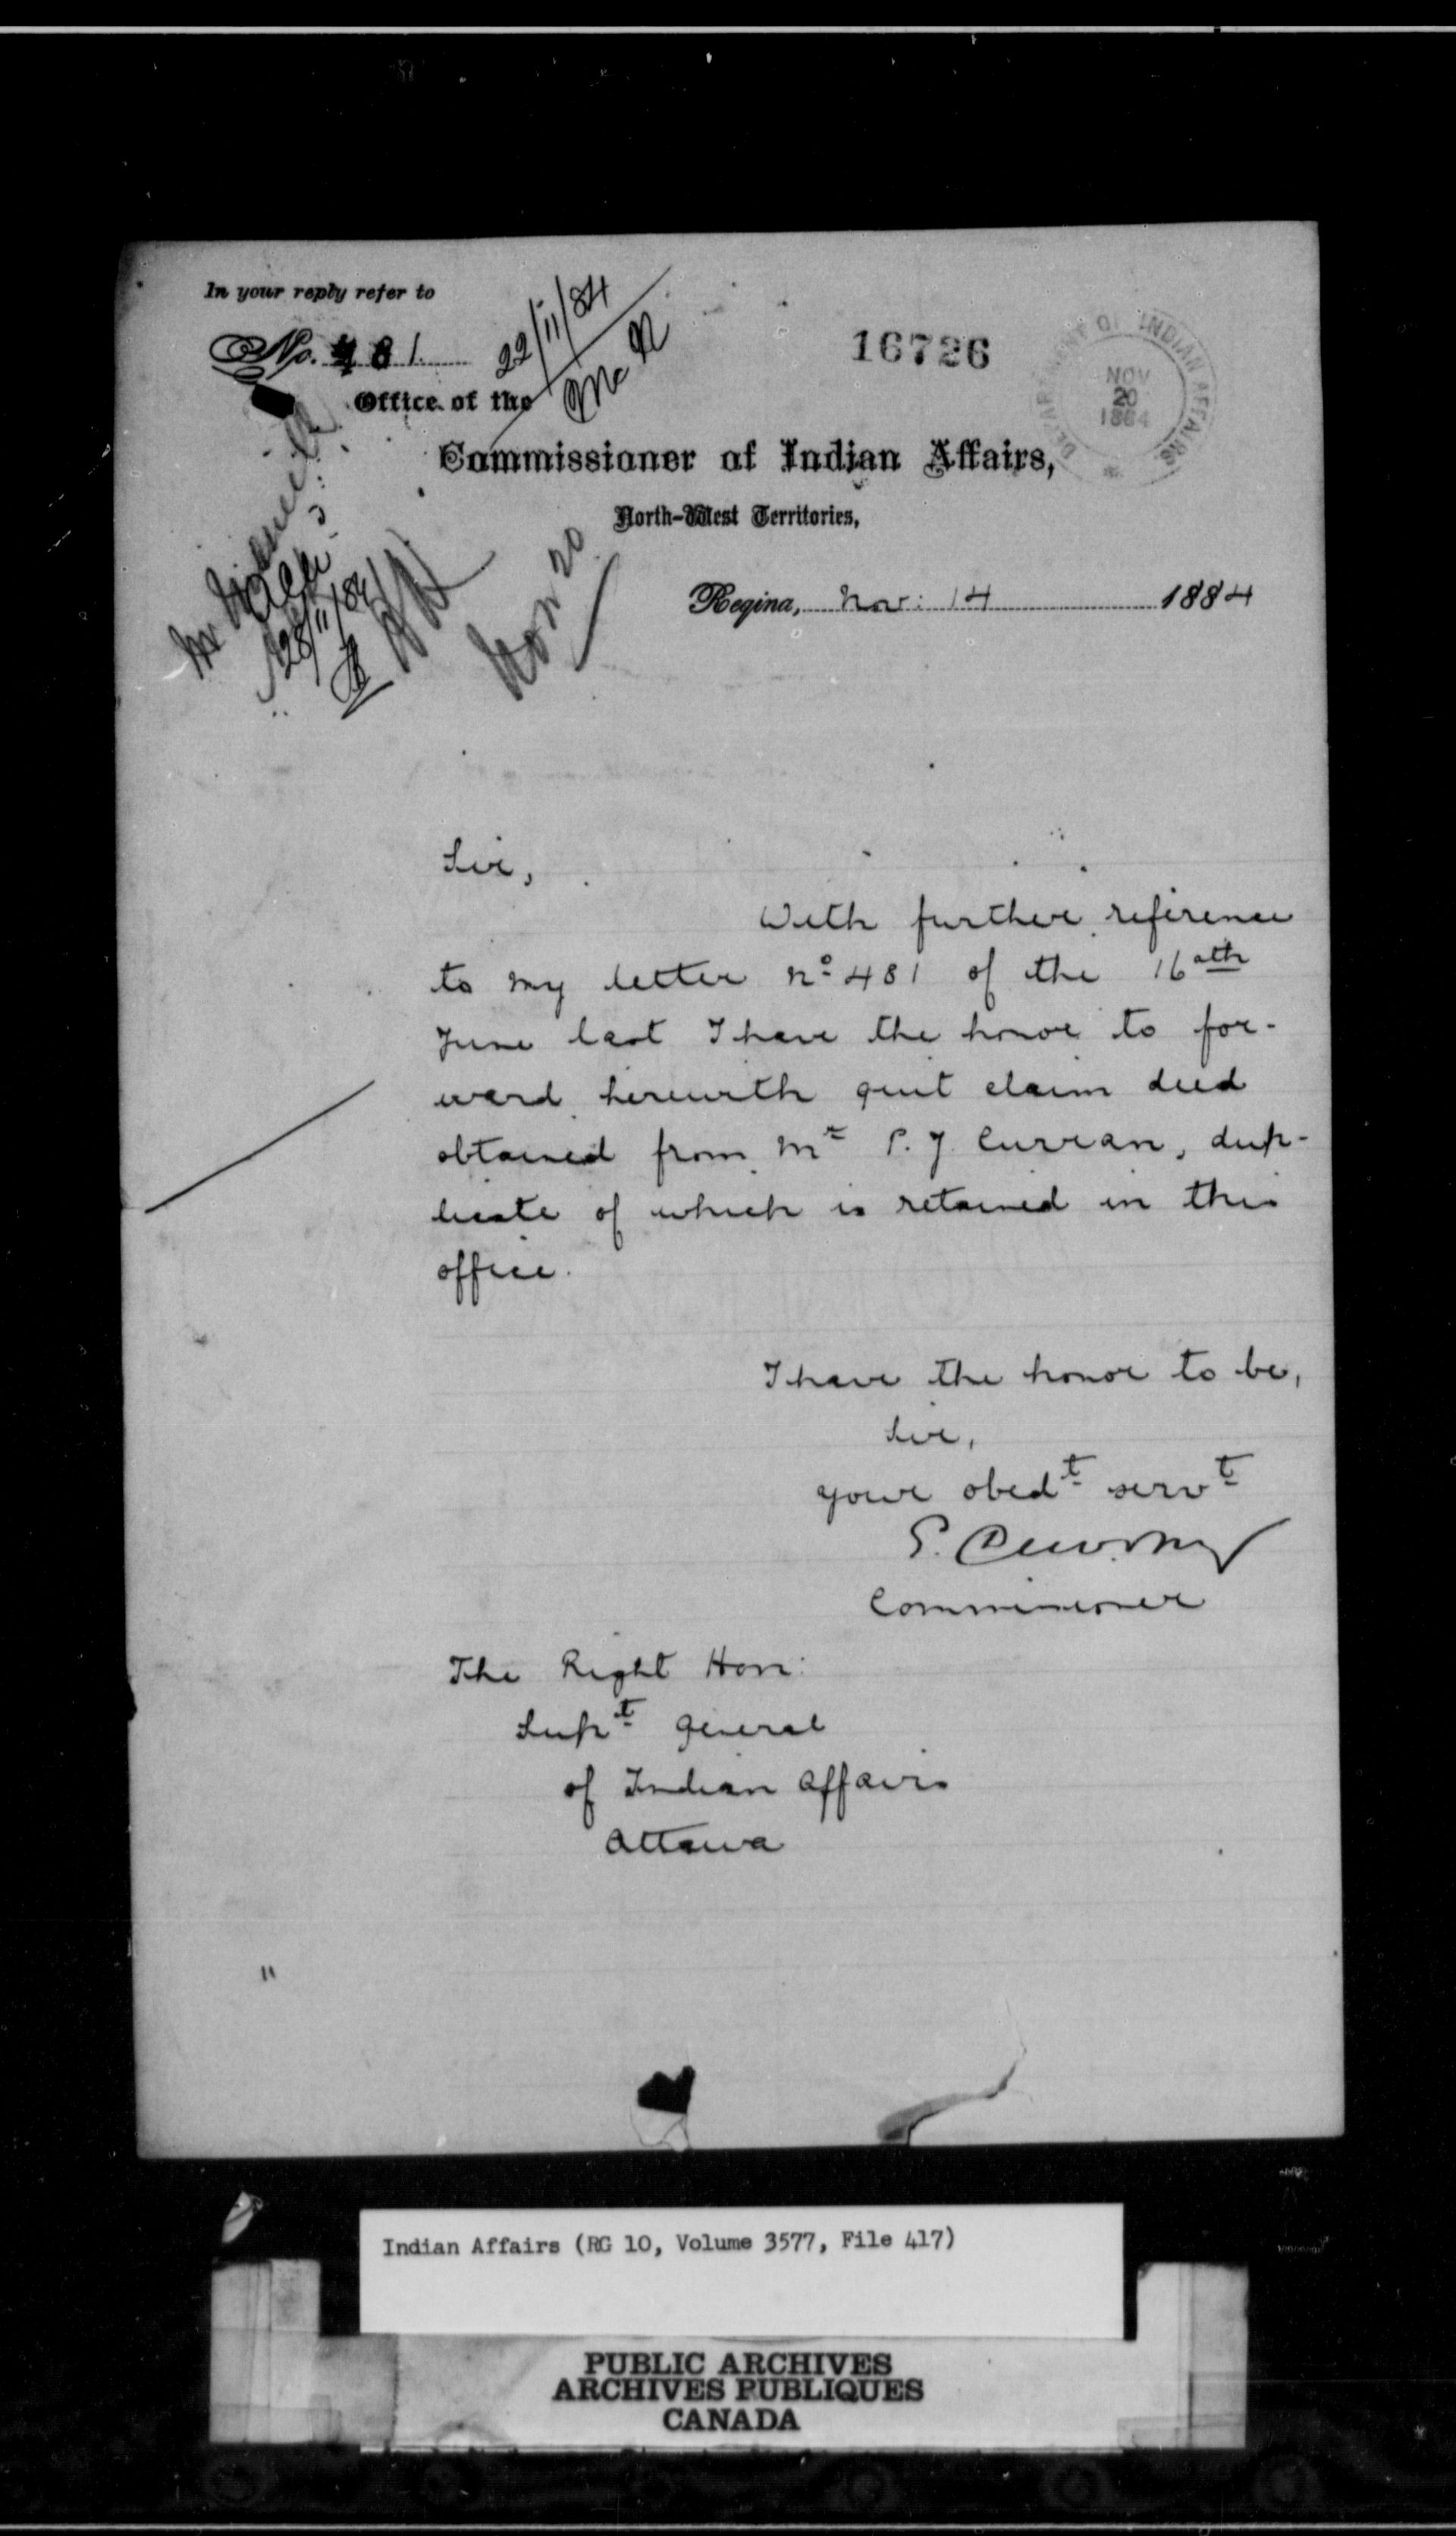 In your reply refer to
No. 481.
22/11/84
16726
DEPARTMENT OF INDIAN AFFAIRS
NOV
20
1884
Office of the
Commissioner of Indian Affairs,
North-West Territories,
28/11/84
Nov 20
Regina, Nov: 14 1884
Sir,
With further reference
to my letter No 481 of the 16 ath
June last I have the honor to for-
ward herewith quit claim deed
obtained from Mr P. J. Curran, dup-
licate of which is retained in this
office.
I have the honor to be,
Sir,
your obedt servt
E. Dewdney
Commissioner
The Right Hon:
Supt General
of Indian Affairs
Ottawa
Indian Affairs (RG 10, Volume 3577, File 417)
PUBLIC ARCHIVES
ARCHIVES PUBLIQUES
CANADA